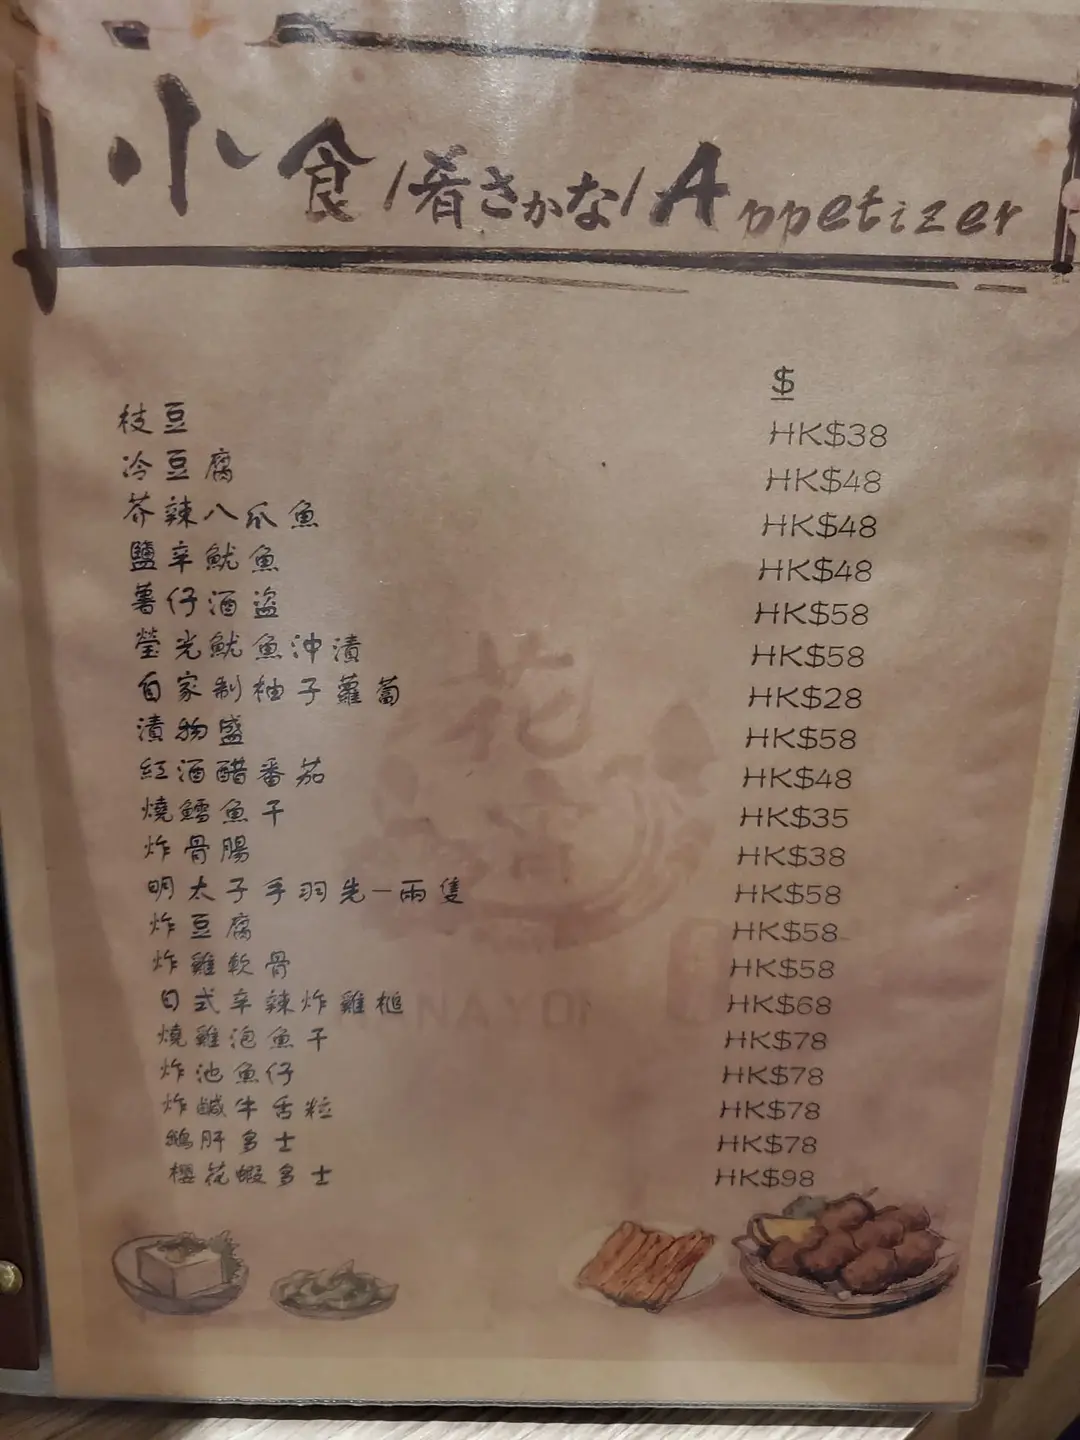 小食/肴さかな/Appetizer
$
枝豆 HK$38
冷豆腐 HK$48
芥辣八爪魚 HK$48
鹽辛魷魚 HK$48
薯仔酒盜 HK$58
瑩光魷魚沖漬 HK$58
自家制柚子蘿蔔 HK$28
漬物盛 HK$58
紅酒醋番茄 HK$48
燒鱈魚干 HK$35
炸骨腸 HK$38
明太子手羽先一兩隻 HK$58
炸豆腐 HK$58
炸雞軟骨 HK$58
日式辛辣炸雞槌 HK$68
燒雞泡魚干 HK$78
炸池魚仔 HK$78
炸鹹牛舌粒 HK$78
鵝肝多士 HK$78
櫻花蝦多士 HK$98